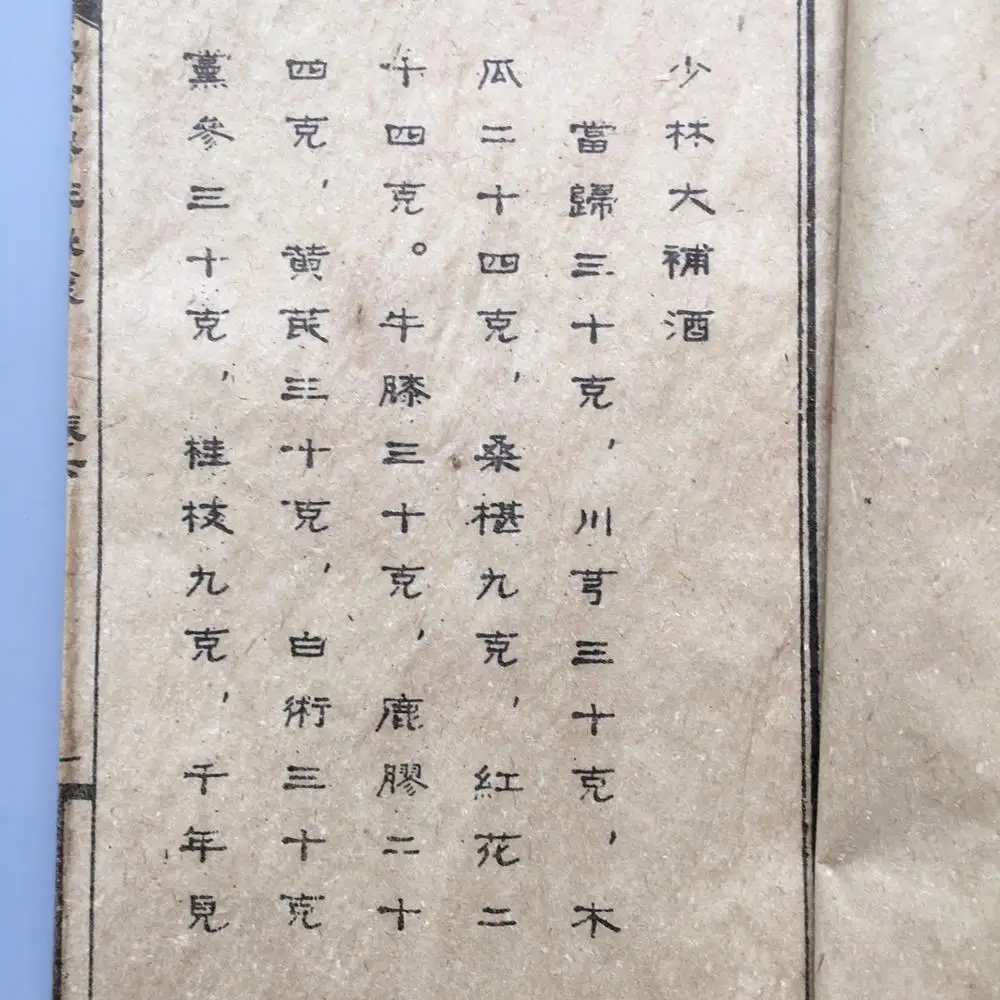 少林大補酒
當歸三十克，川芎三十克，木
瓜二十四克，桑椹九克，紅花二
十四克。牛膝三十克，鹿膠二十
四克，黄芪三十克，白術三十克
黨參三十克，桂枝九克，千年見